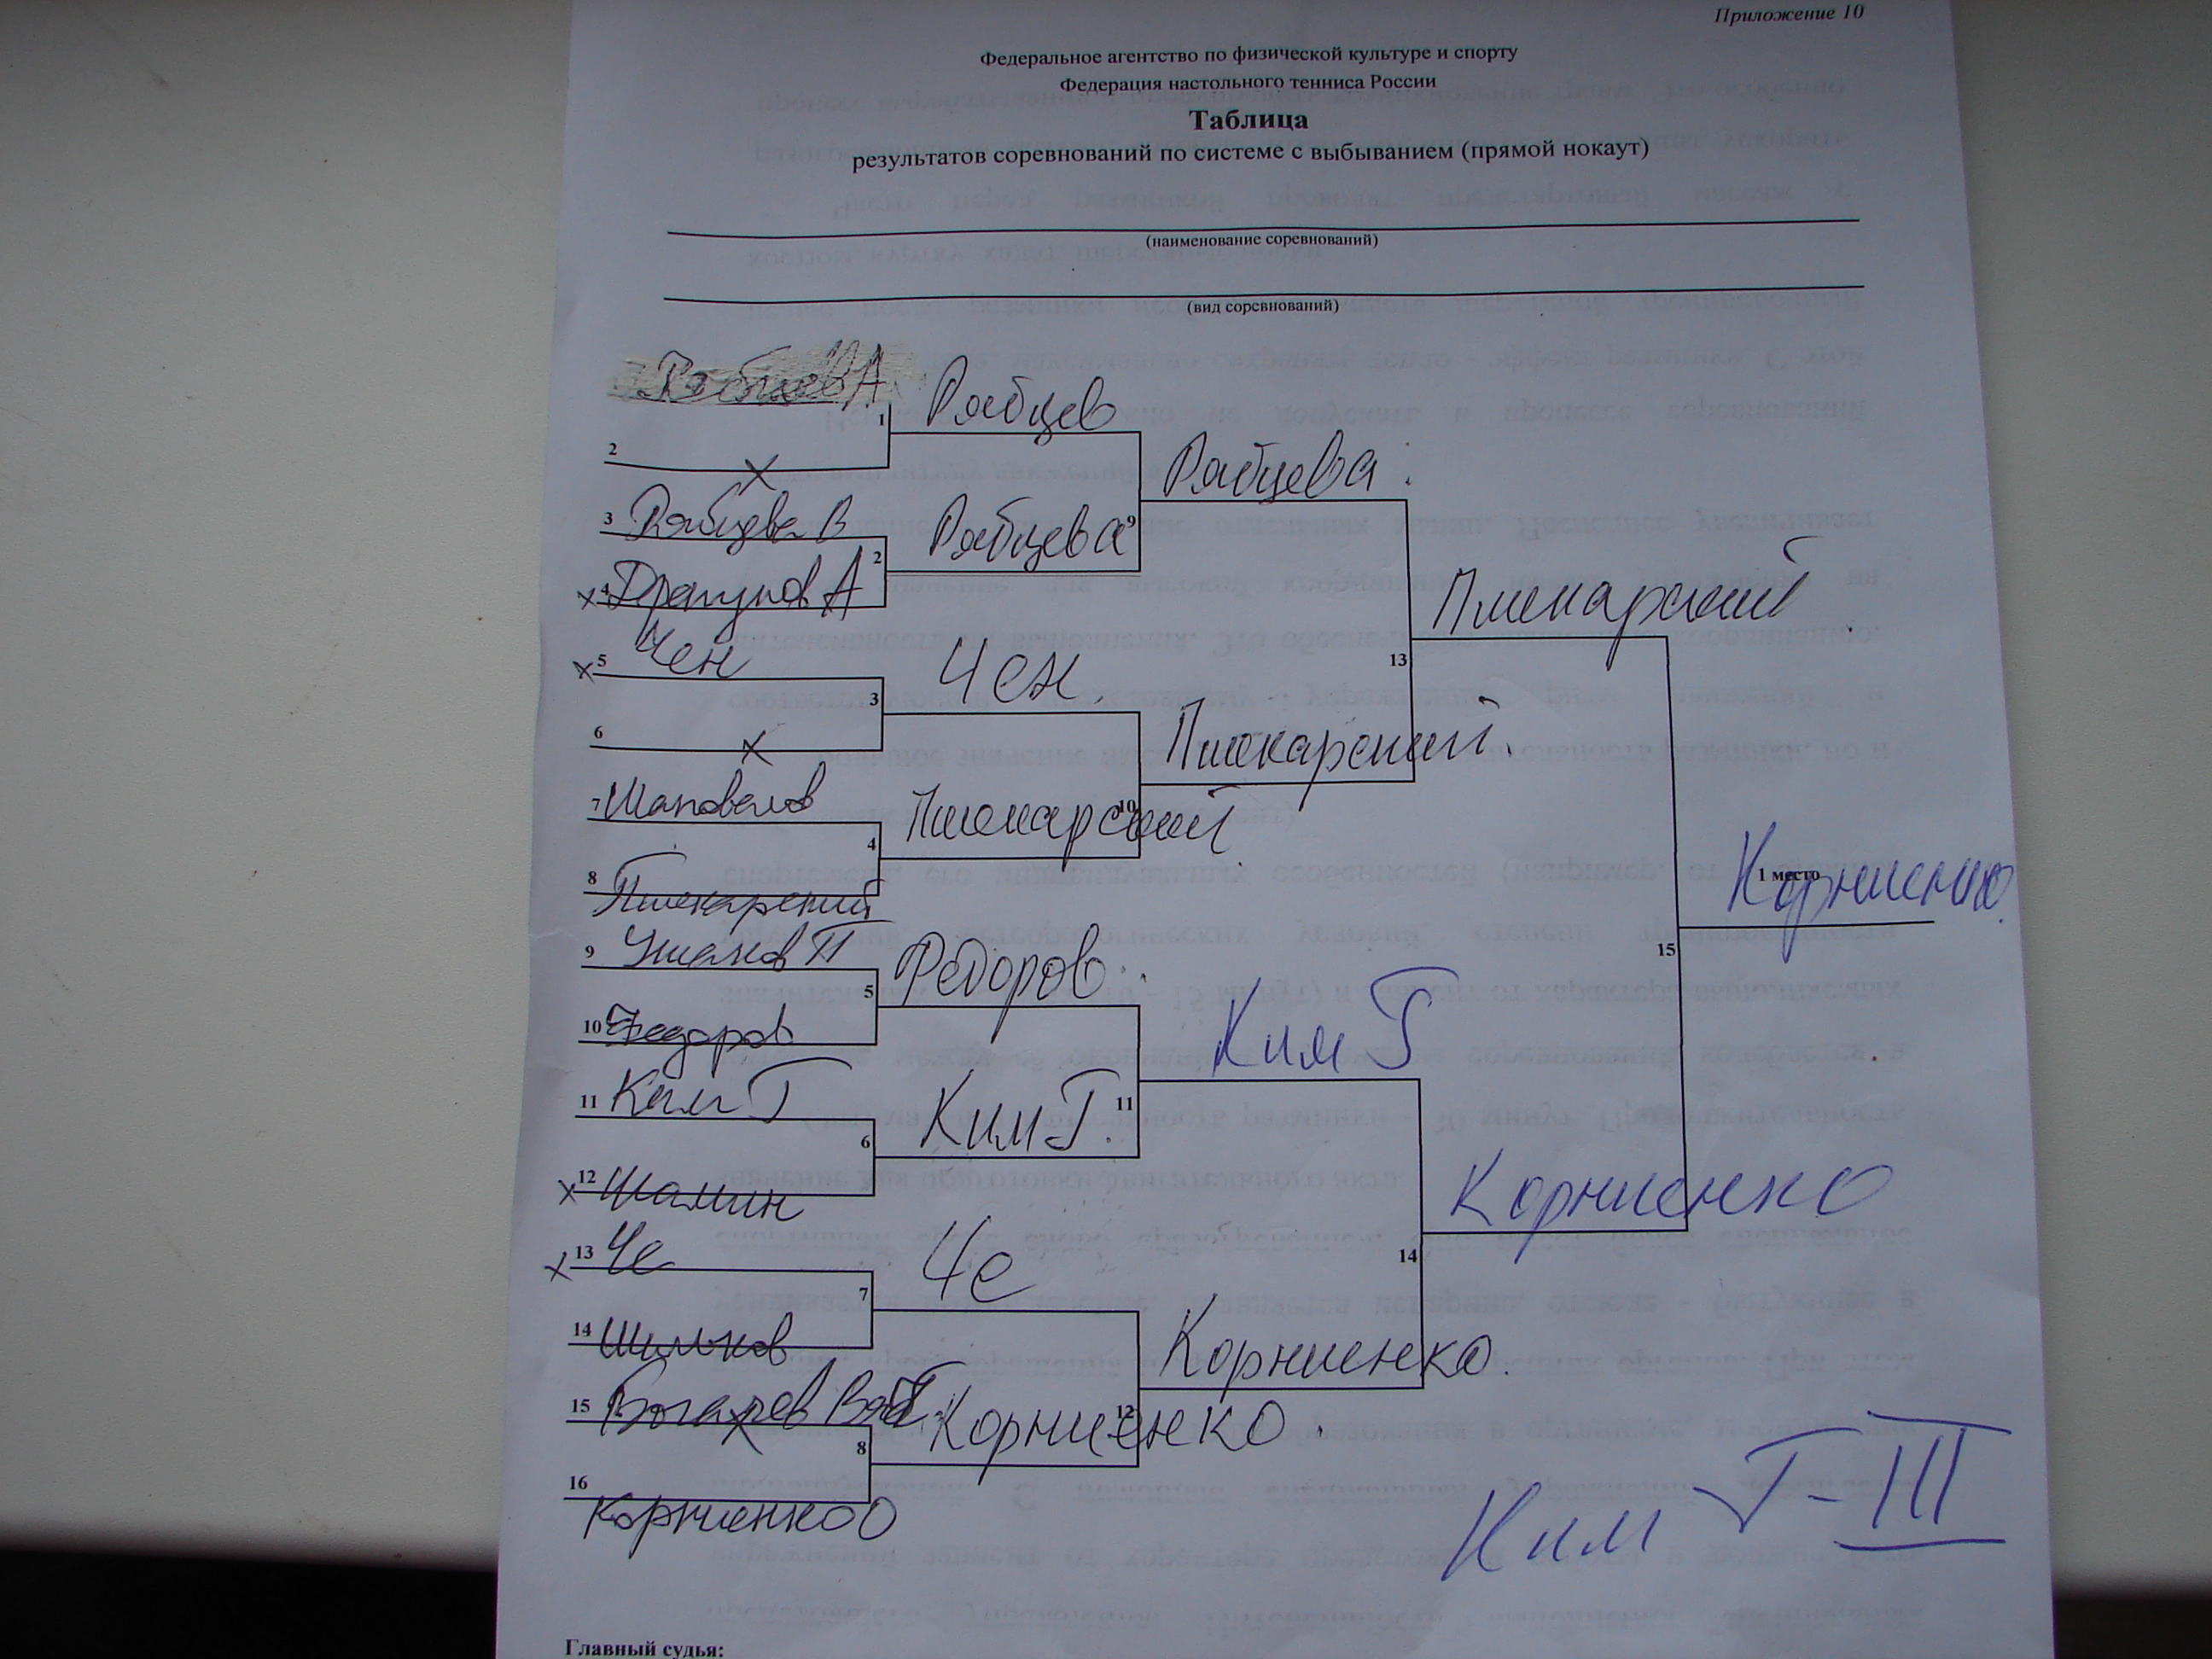 Приложение 10
Федеральное агентство по физической культуре и спорту
Федерация настольного тенниса России
Таблица
результатов соревнований по системе с выбыванием (прямой нокаут)
(наименование соревнований)
(вид соревнований)
Рябцев А.
1
Рябцев
2
х
Рябцева
3 Рябцева В
2
Рябцева
9
х 4 Драгунов А
Пшекарский
х 5 Чен
3
Чен
13
6
х
Пшекарский.
7 Шаповалов
4
Пшекарский.
10
8 Пшекарский
1 место
Корниенко
9 Ушаков П
5
Федоров
15
10 Федоров
Ким Т
11 Ким Т
6
Ким Т.
11
х 12 Шамин
Корниенко
х 13 Че
7
Че
14
14 Шильков
Корниенко.
15
8
Корниенко.
12
16
Корниенко О
Ким Т - III
Главный судья: